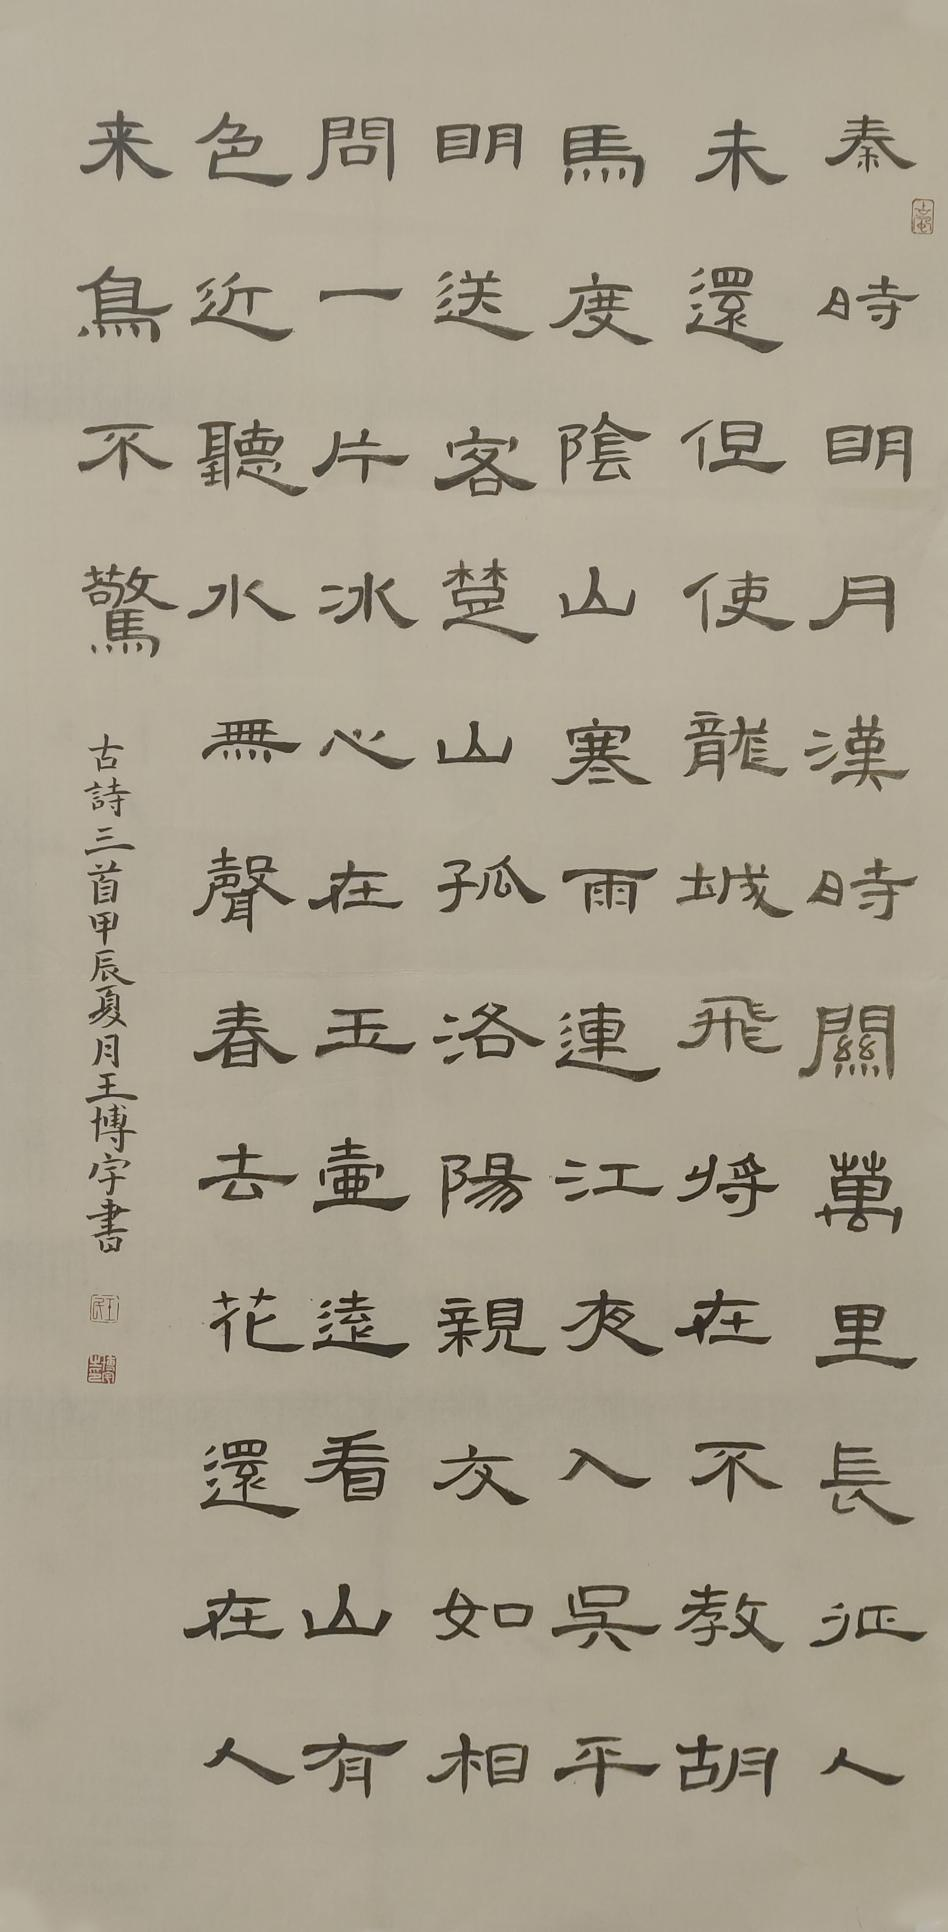 秦時明月漢時關萬里長征人
未還但使龍城飛將在不教胡
馬度陰山寒雨連江夜入吳平
明送客楚山孤洛陽親友如相
問一片冰心在玉壺遠看山有
色近聽水無聲春去花還在人
来鳥不驚
古詩三首甲辰夏月王博宇書